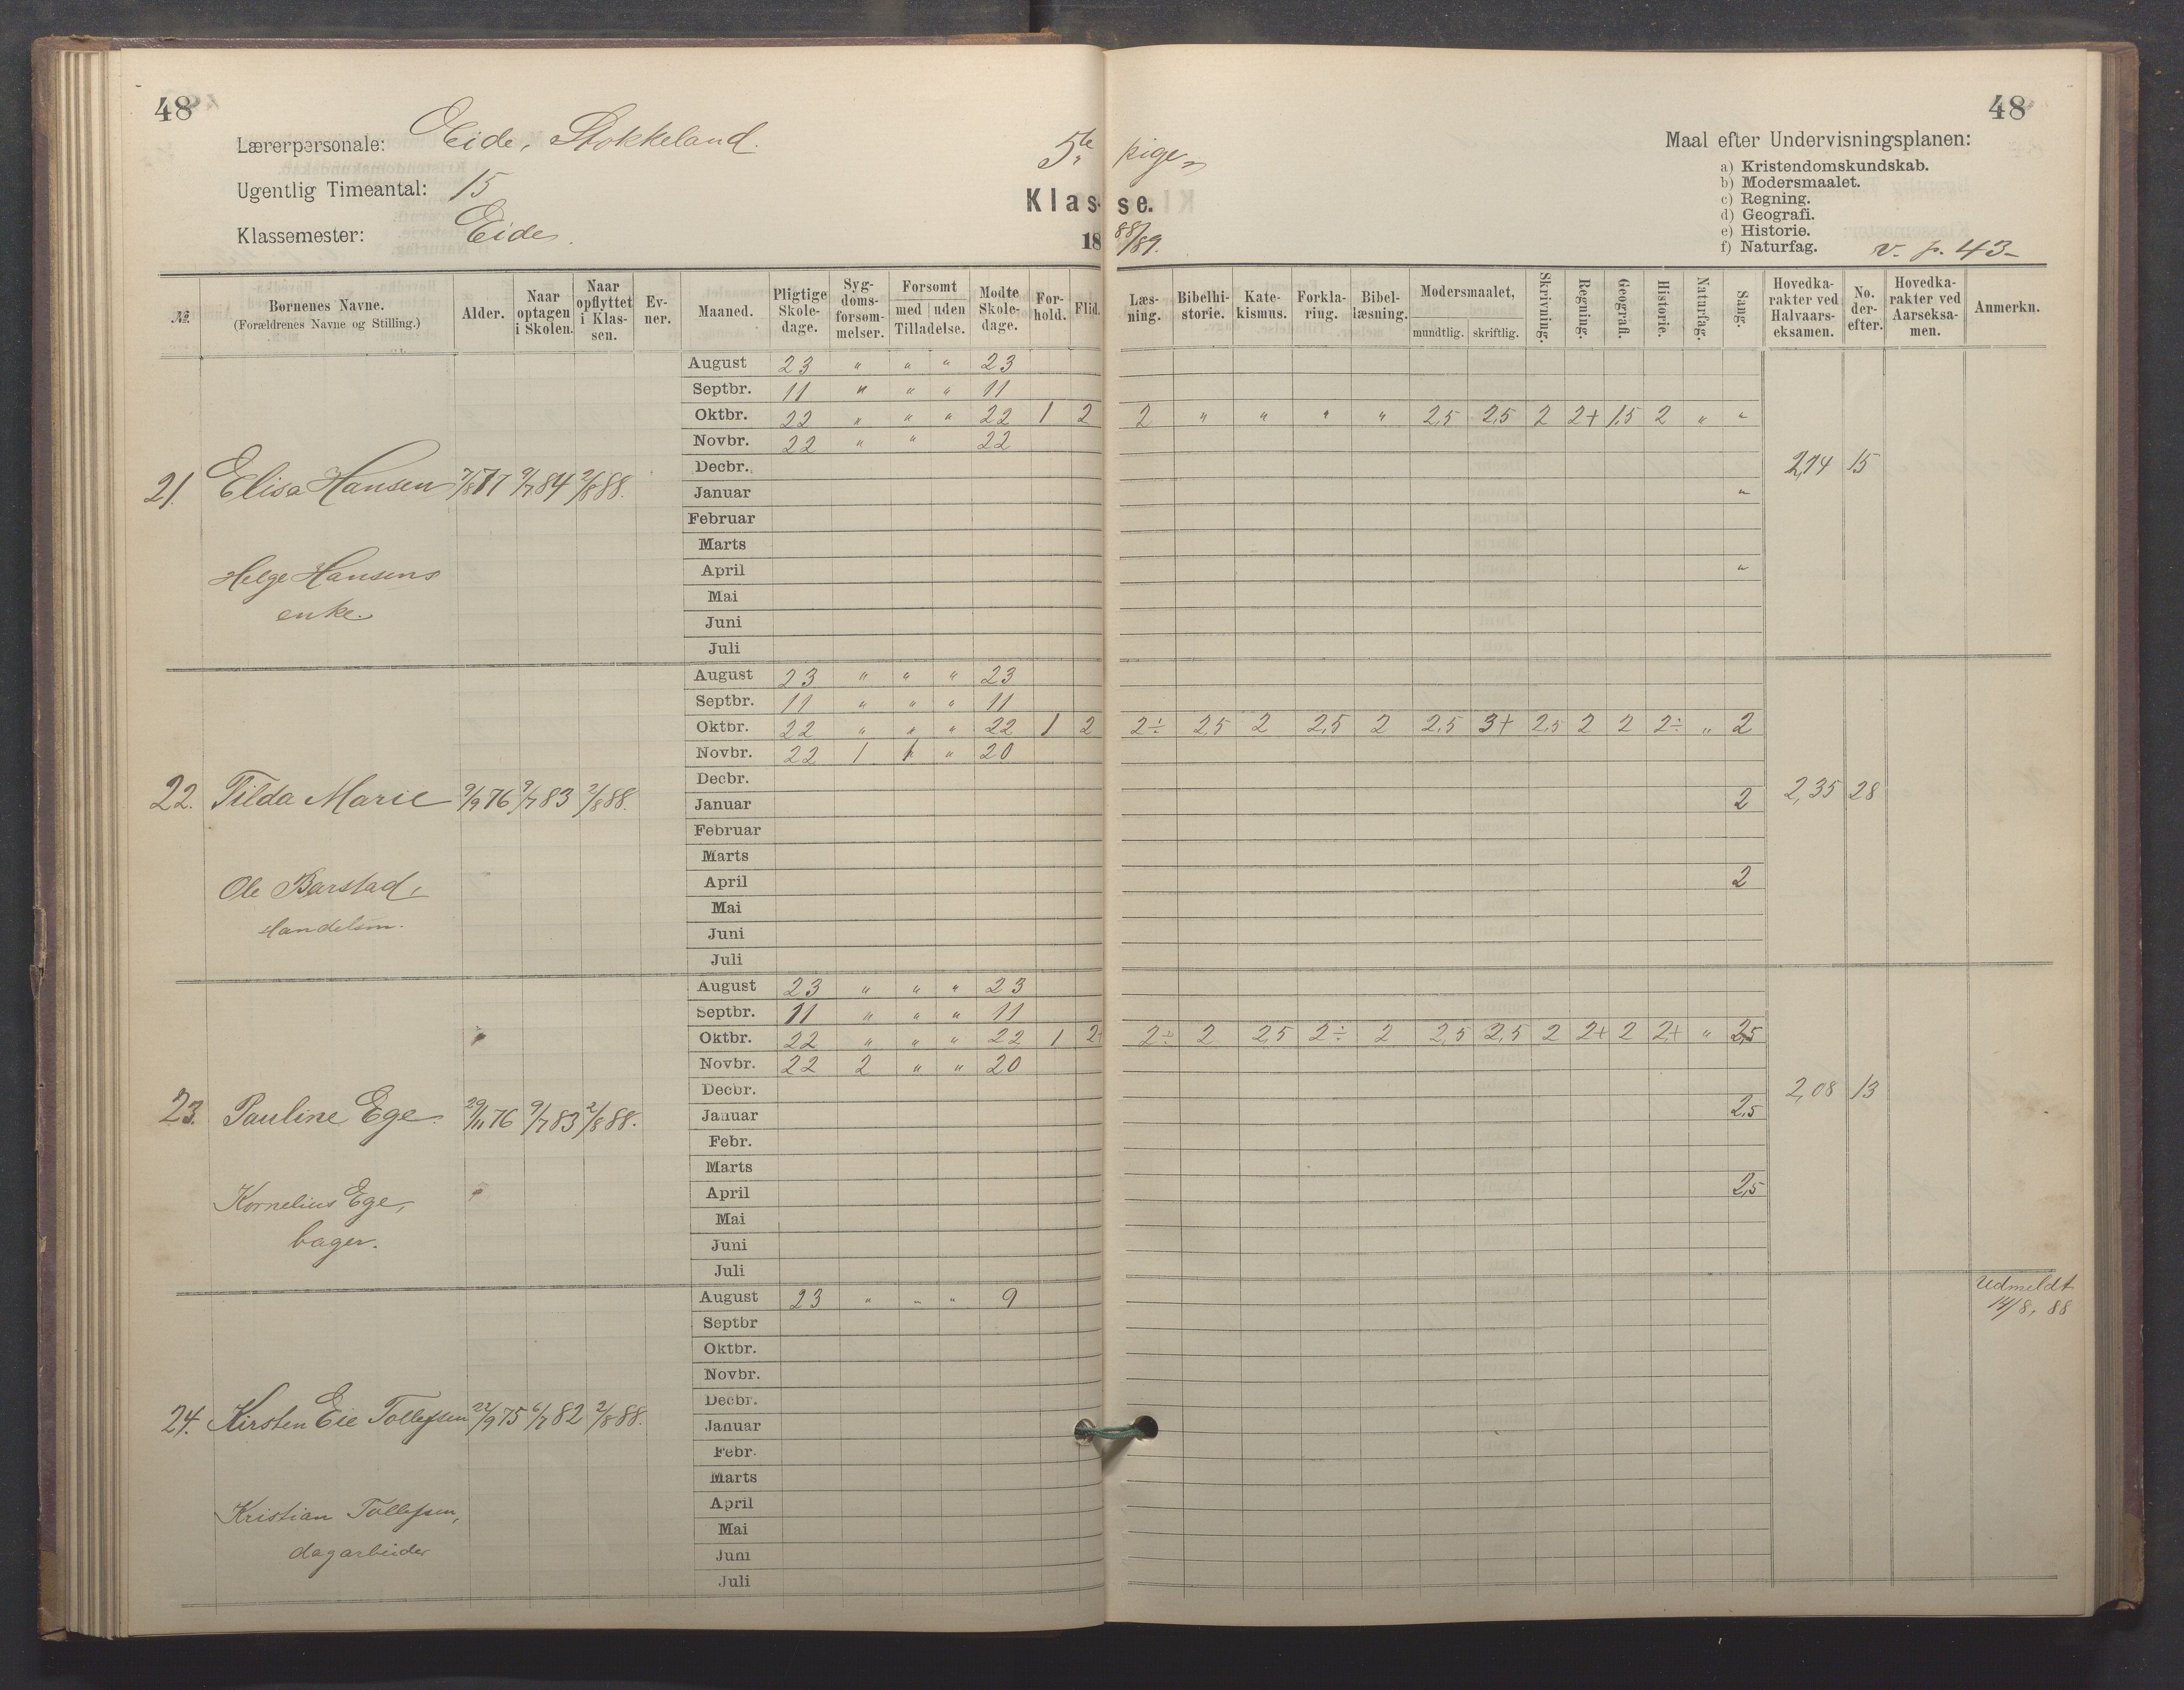 48
48
Lærerpersonale: Eide, Stokkeland.
Ugentlig Timeantal: 15
Klassemester: Eide.
5te piger
Klasse.
1888/89.
Maal efter Undervisningsplanen:
a) Kristendomskundskab.
b) Modersmaalet.
c) Regning.
d) Geografi.
e) Historie.
f) Naturfag. v. p. 43
№ Børnenes Navne. (Forældrenes Navne og Stilling.) Alder. Naar optagen i Skolen. Naar opflyttet i Klassen. Evner. Maaned. Pligtige Skoledage. Sygdomsforsømmelser. Forsømt med uden Tilladelse. Mødte Skoledage. Forhold. Flid. Læsning. Bibelhistorie. Katekismus. Forklaring. Bibellæsning. Modersmaalet, mundtlig. skriftlig. Skrivning. Regning. Geografi. Historie. Naturfag. Sang. Hovedkarakter ved Halvaarseksamen. No. derefter. Hovedkarakter ved Aarseksamen. Anmerkn.
August 23 " " " 23
Septbr. 11 " " " 11
Oktbr. 22 " " " 22 1 2 2 " " " " 2,5 2,5 2 2+ 1,5 2 " "
Novbr. 22 " " 22
Decbr. 2,14 15
21. Elisa Hansen 7/8 77 9/7 84 2/8 88. Januar "
Februar
Marts
Helge Hansens April "
enke. Mai
Juni
Juli
August 23 " " " 23
Septbr. 11 " " " 11
Oktbr. 22 " " " 22 1 2 2÷ 2,5 2 2,5 2 2,5 3+ 2,5 2 2 2÷ " 2
Novbr. 22 1 1 " 20
Decbr.
22. Tilda Marie 9/9 76 9/7 83 2/8 88. Januar 2 2,35 28
Februar
Marts
Ole Barstad, April 2
Handelsm. Mai
Juni
Juli
August 23 " " " 23
Septbr. 11 " " " 11
Oktbr. 22 " " " 22 1 2+ 2÷ 2 2,5 2÷ 2 2,5 2,5 2 2+ 2 2+ " 2,5
Novbr. 22 2 " " 20
Decbr. 2,08 13
23. Pauline Ege. 29/11 76 9/7 83 2/8 88. Januar 2,5
Febr.
Marts
Kornelius Ege, April 2,5
bager. Mai
Juni
Juli
August 23 " " " 9 Udmeldt 14/8, 88
Septbr
Oktbr.
Novbr.
Decbr.
24. Kirsten Eie Tollefsen 22/9 75 6/7 82 2/8 88. Januar
Febr.
Marts
Kristian Tollefsen, April
dagarbeider Mai
Juni
Juli